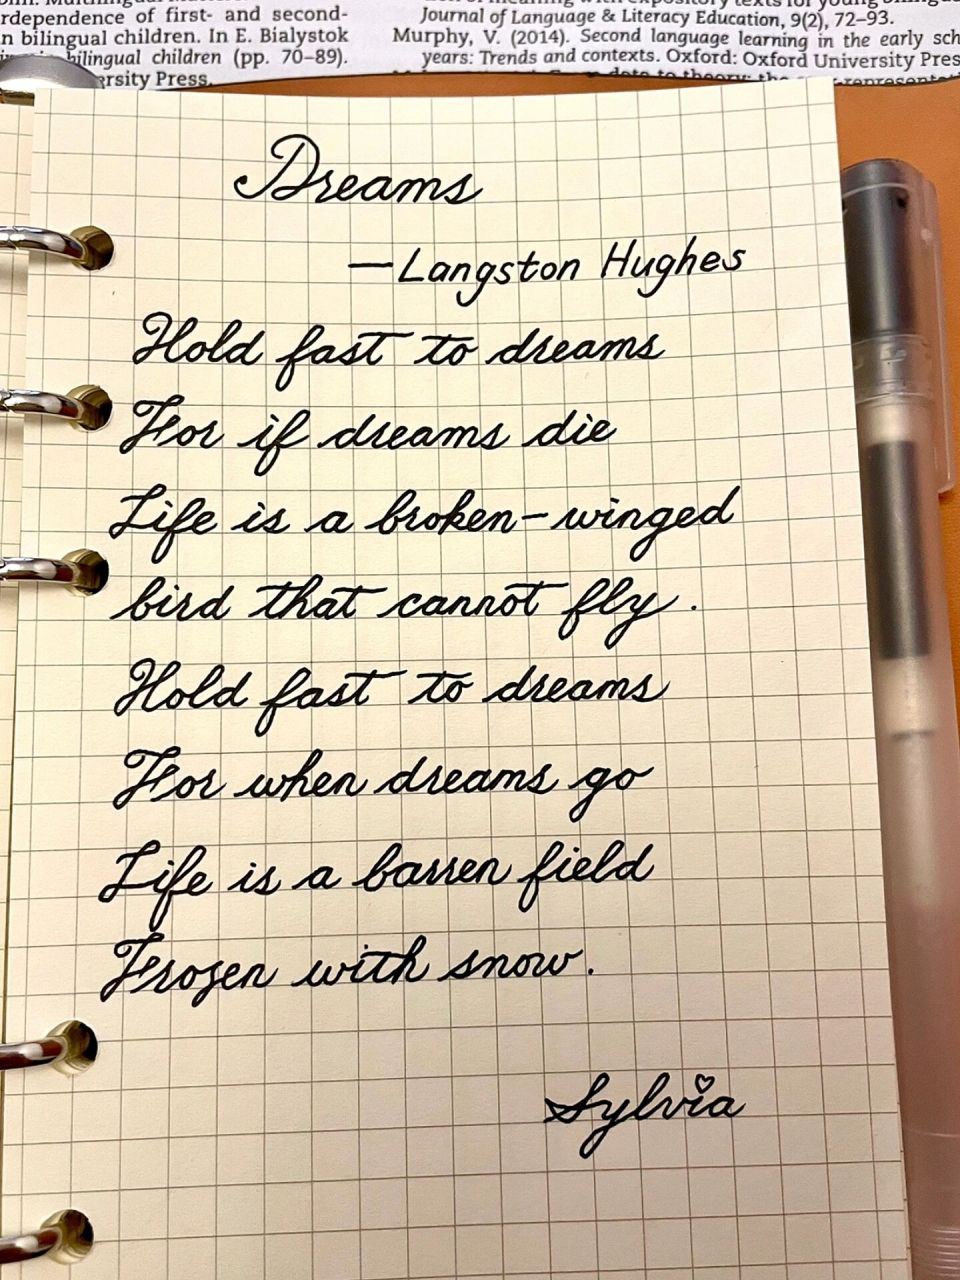 rdependence of first- and second-
n bilingual children. In E. Bialystok
bilingual children (pp. 70–89).
rsity Press.
Journal of Language & Literacy Education, 9(2), 72–93.
Murphy, V. (2014). Second language learning in the early sch
years: Trends and contexts. Oxford: Oxford University Pres
Dreams
—Langston Hughes
Hold fast to dreams
For if dreams die
Life is a broken-winged
bird that cannot fly.
Hold fast to dreams
For when dreams go
Life is a barren field
Frozen with snow.
Sylvia